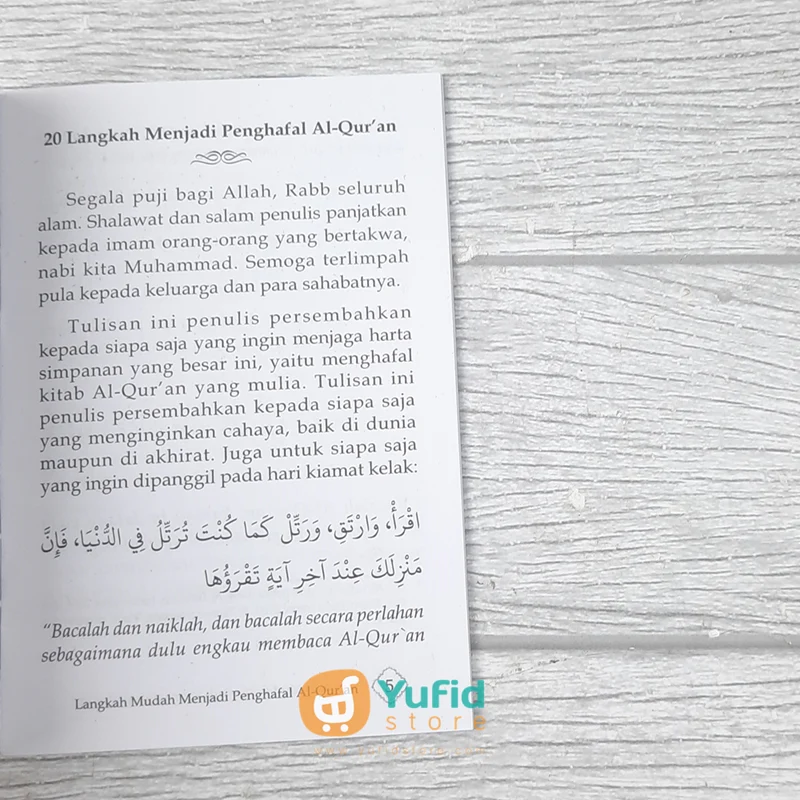 20 Langkah Menjadi Penghafal Al-Qur'an
Segala puji bagi Allah, Rabb seluruh
alam. Shalawat dan salam penulis panjatkan
kepada imam orang-orang yang bertakwa,
nabi kita Muhammad. Semoga terlimpah
pula kepada keluarga dan para sahabatnya.
Tulisan ini penulis persembahkan
kepada siapa saja yang ingin menjaga harta
simpanan yang besar ini, yaitu menghafal
kitab Al-Qur'an yang mulia. Tulisan ini
penulis persembahkan kepada siapa saja
yang menginginkan cahaya, baik di dunia
maupun di akhirat. Juga untuk siapa saja
yang ingin dipanggil pada hari kiamat kelak:
اقْرَأْ، وَارْتَقِ، وَرَتِّلْ كَمَا كُنْتَ تُرَتِّلُ فِي الدُّنْيَا، فَإِنَّ
مَنْزِلَكَ عِنْدَ آخِرِ آيَةٍ تَقْرَؤُهَا
"Bacalah dan naiklah, dan bacalah secara perlahan
sebagaimana dulu engkau membaca Al-Qur`an
Langkah Mudah Menjadi Penghafal Al-Qur'an 5
Yufid
store